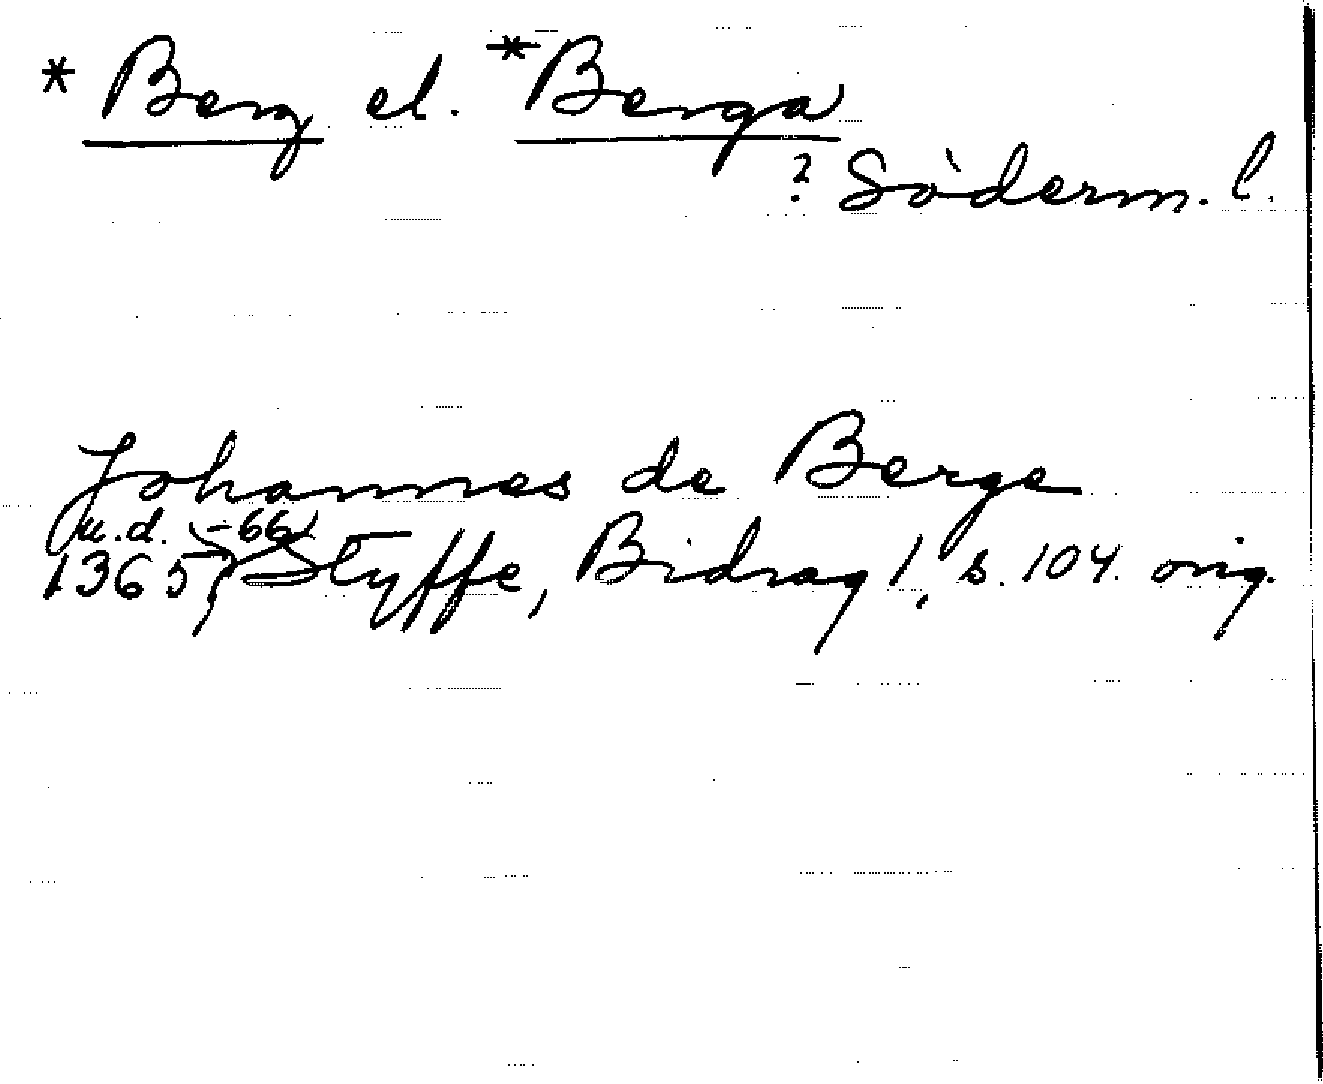 * Berg el. *Berga
? Söderm. l.
Johannes de Berge
(u.d. -66)
1365, Styffe, Bidrag 1, s. 104. orig.